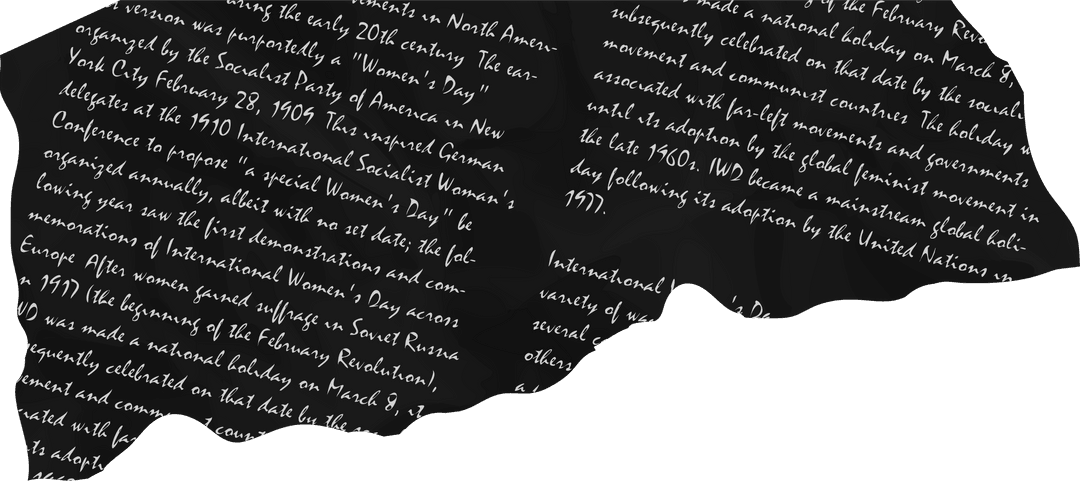 ring the early 20th century The ear-
version was purportedly a "Women's Day"
organized by the Socialist Party of America in New
York City February 28, 1909 This inspired German
delegates at the 1910 International Socialist Woman's
Conference to propose "a special Women's Day" be
organized annually, albeit with no set date; the fol-
lowing year saw the first demonstrations and com-
memorations of International Women's Day across
Europe After women gained suffrage in Soviet Russia
n 1917 (the beginning of the February Revolution),
WD was made a national holiday on March 8, it
equently celebrated on that date by the
ement and comm
with fa
ts adopt
of the February Revo
made a national holiday on March 8,
subsequently celebrated on that date by the sociali
movement and communist countries The holiday w
associated with far-left movements and governments
until its adoption by the global feminist movement in
the late 1960s. IWD became a mainstream global holi-
day following its adoption by the United Nations in
1977.
International
variety of
several
others
a